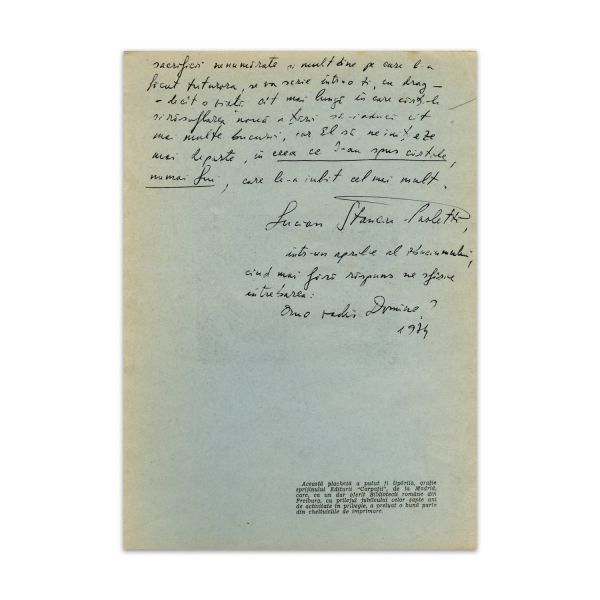 sacrificii nenumărate și mult bine pe care l-a
făcut tuturora, se va scrie într-o zi, cu drag -
- decît o viață cît mai lungă în care cărțile
și răsuflarea nouă a Țării să-i aducă cît
mai multe bucurii, iar El să ne
mai departe, în ceea ce I-au spus cărțile,
numai Lui, care le-a iubit cel mai mult.
Lucian Stanciu-Paoletti,
într-un aprilie al zbuciumului,
cînd mai fără răspuns ne sfîșie
întrebarea:
Quo vadis Domine?
1974
Această plachetă a putut fi tipărită, grație
sprijinului Editurii "Carpații", de la Madrid,
care, ca un dar oferit Bibliotecii române din
Freiburg, cu prilejul jubileului celor șapte ani
de activitate în pribegie, a preluat o bună parte
din cheltuielile de imprimare.